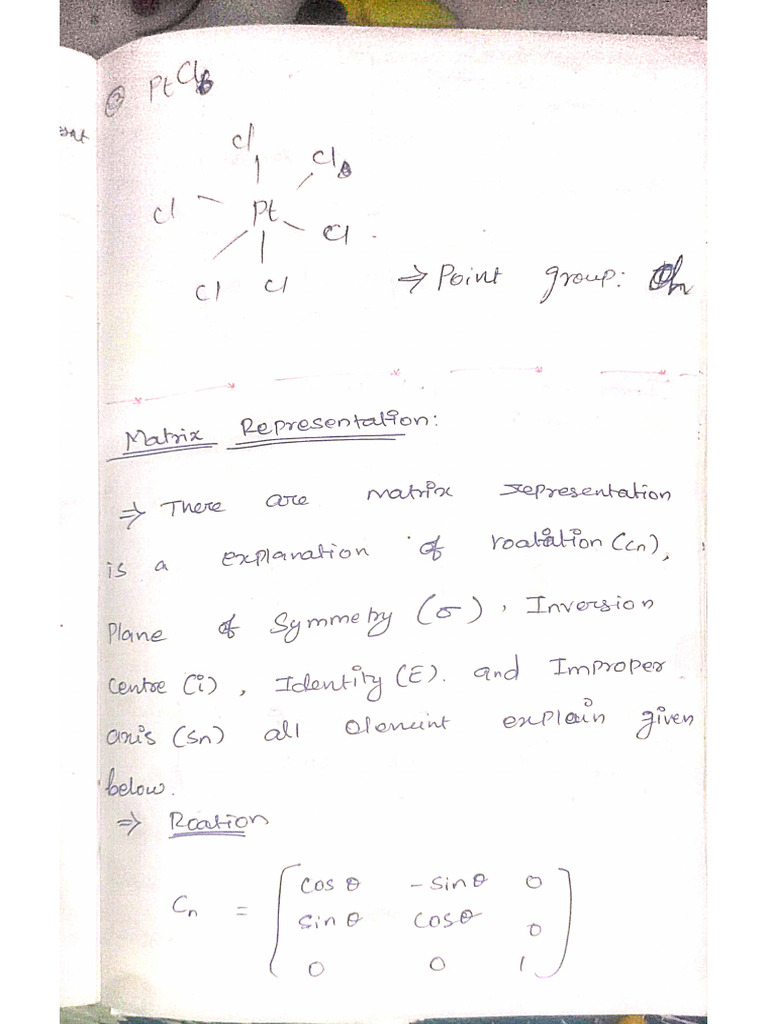 ③ PtCl6
Cl
Cl
Cl
Pt
Cl
Cl
Cl
⇒ Point group: Oh
Matrix Representation:
⇒ There are matrix representation
is a explanation of roatation (Cn),
Plane of Symmetry (σ), Inversion
Centre (i), Identity (E). and Improper
axis (Sn) all element explain given
below.
⇒ Roation
Cn = [ cos θ -sin θ 0
sin θ cos θ 0
0 0 1 ]